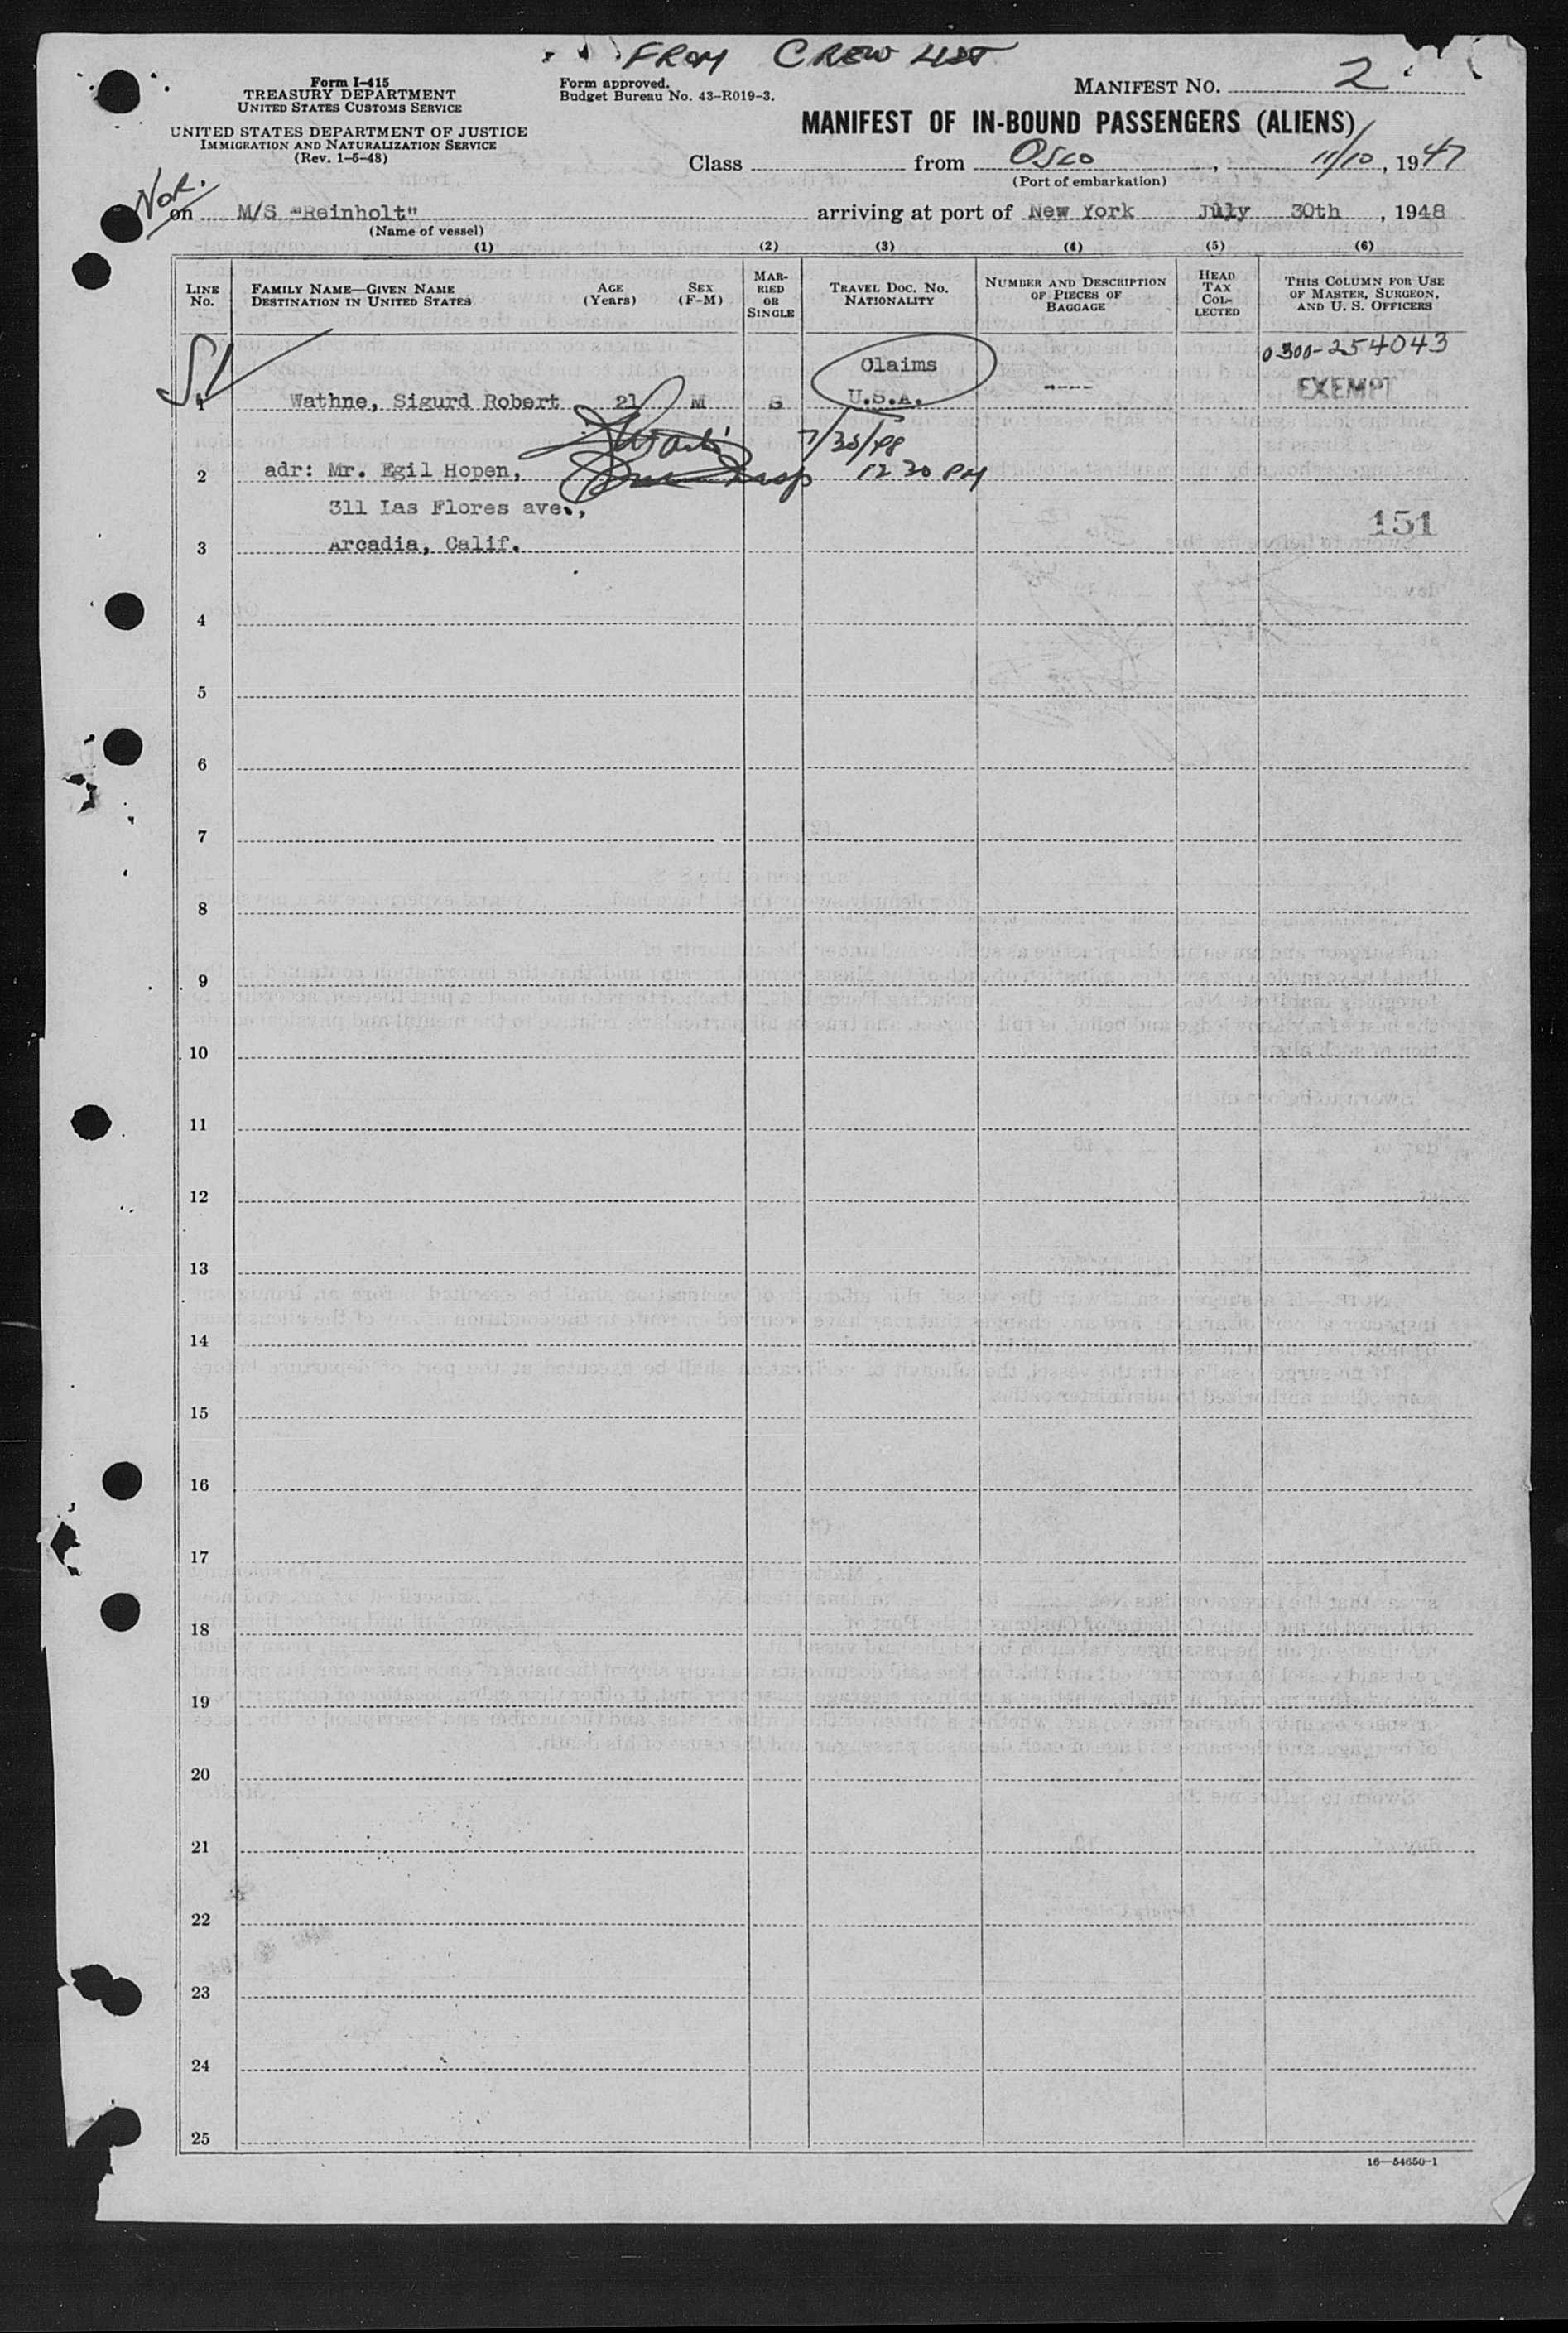 FROM CREW LIST
Form I-415
TREASURY DEPARTMENT
UNITED STATES CUSTOMS SERVICE
UNITED STATES DEPARTMENT OF JUSTICE
IMMIGRATION AND NATURALIZATION SERVICE
(Rev. 1-5-48)
Form approved.
Budget Bureau No. 43-R019-3.
MANIFEST NO. 2
MANIFEST OF IN-BOUND PASSENGERS (ALIENS)
Class from OSLO, 11/10, 1947
(Port of embarkation)
Nor.
on M/S "Reinholt" arriving at port of New York July 30th, 1948
(Name of vessel)
(1) (2) (3) (4) (5) (6)
LINE No. FAMILY NAME—GIVEN NAME DESTINATION IN UNITED STATES AGE (Years) SEX (F-M) MARRIED OR SINGLE TRAVEL DOC. NO. NATIONALITY NUMBER AND DESCRIPTION OF PIECES OF BAGGAGE HEAD TAX COLLECTED THIS COLUMN FOR USE OF MASTER, SURGEON, AND U. S. OFFICERS
0300-254043
Claims
---- EXEMPT
1 Wathne, Sigurd Robert 21 M S U.S.A.
7/30/48
2 adr: Mr. Egil Hopen, 12 30 PM
311 Las Flores ave.,
151
3 Arcadia, Calif.
4
5
6
7
8
9
10
11
12
13
14
15
16
17
18
19
20
21
22
23
24
25
16—54650-1